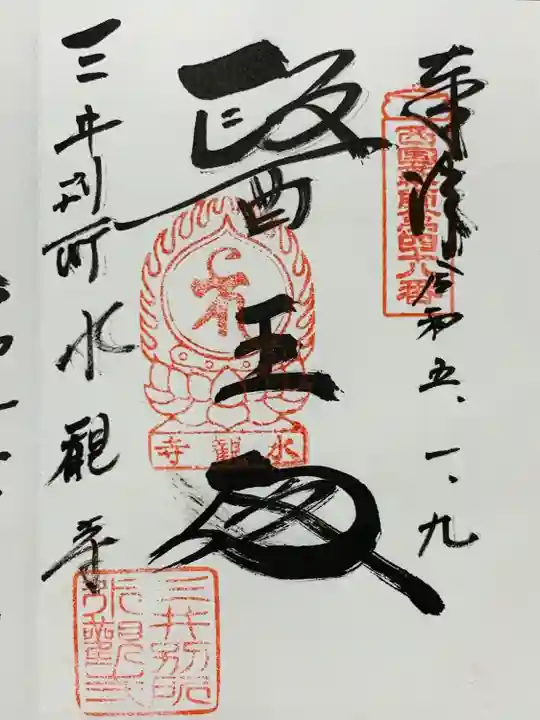 奉拝 令和五、一、九
西國薬師第四十八番
醫王殿
水觀寺
三井別所 水觀寺
三井別所水觀寺